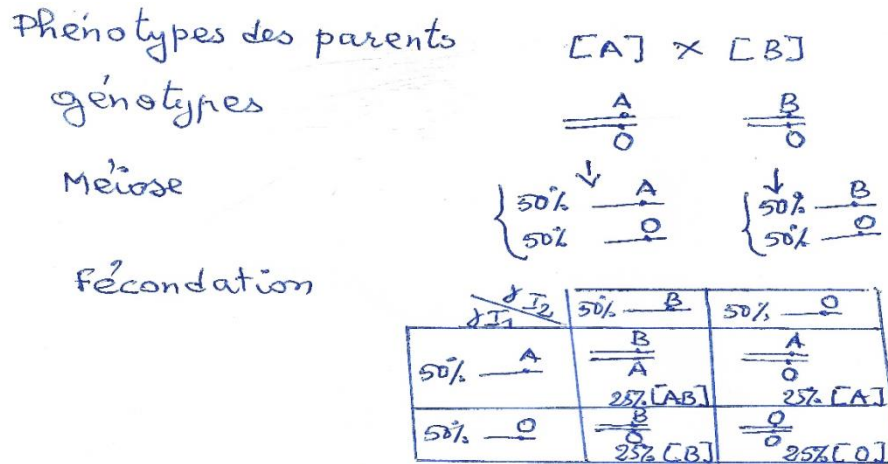 Phénotypes des parents [A] × [B]
génotypes A B
O O
Méiose 50% A 50% B
50% O 50% O
Fécondation
γI₁ γI₂ 50% B 50% O
50% A B A
A O
25% [AB] 25% [A]
50% O B O
O O
25% [B] 25% [O]